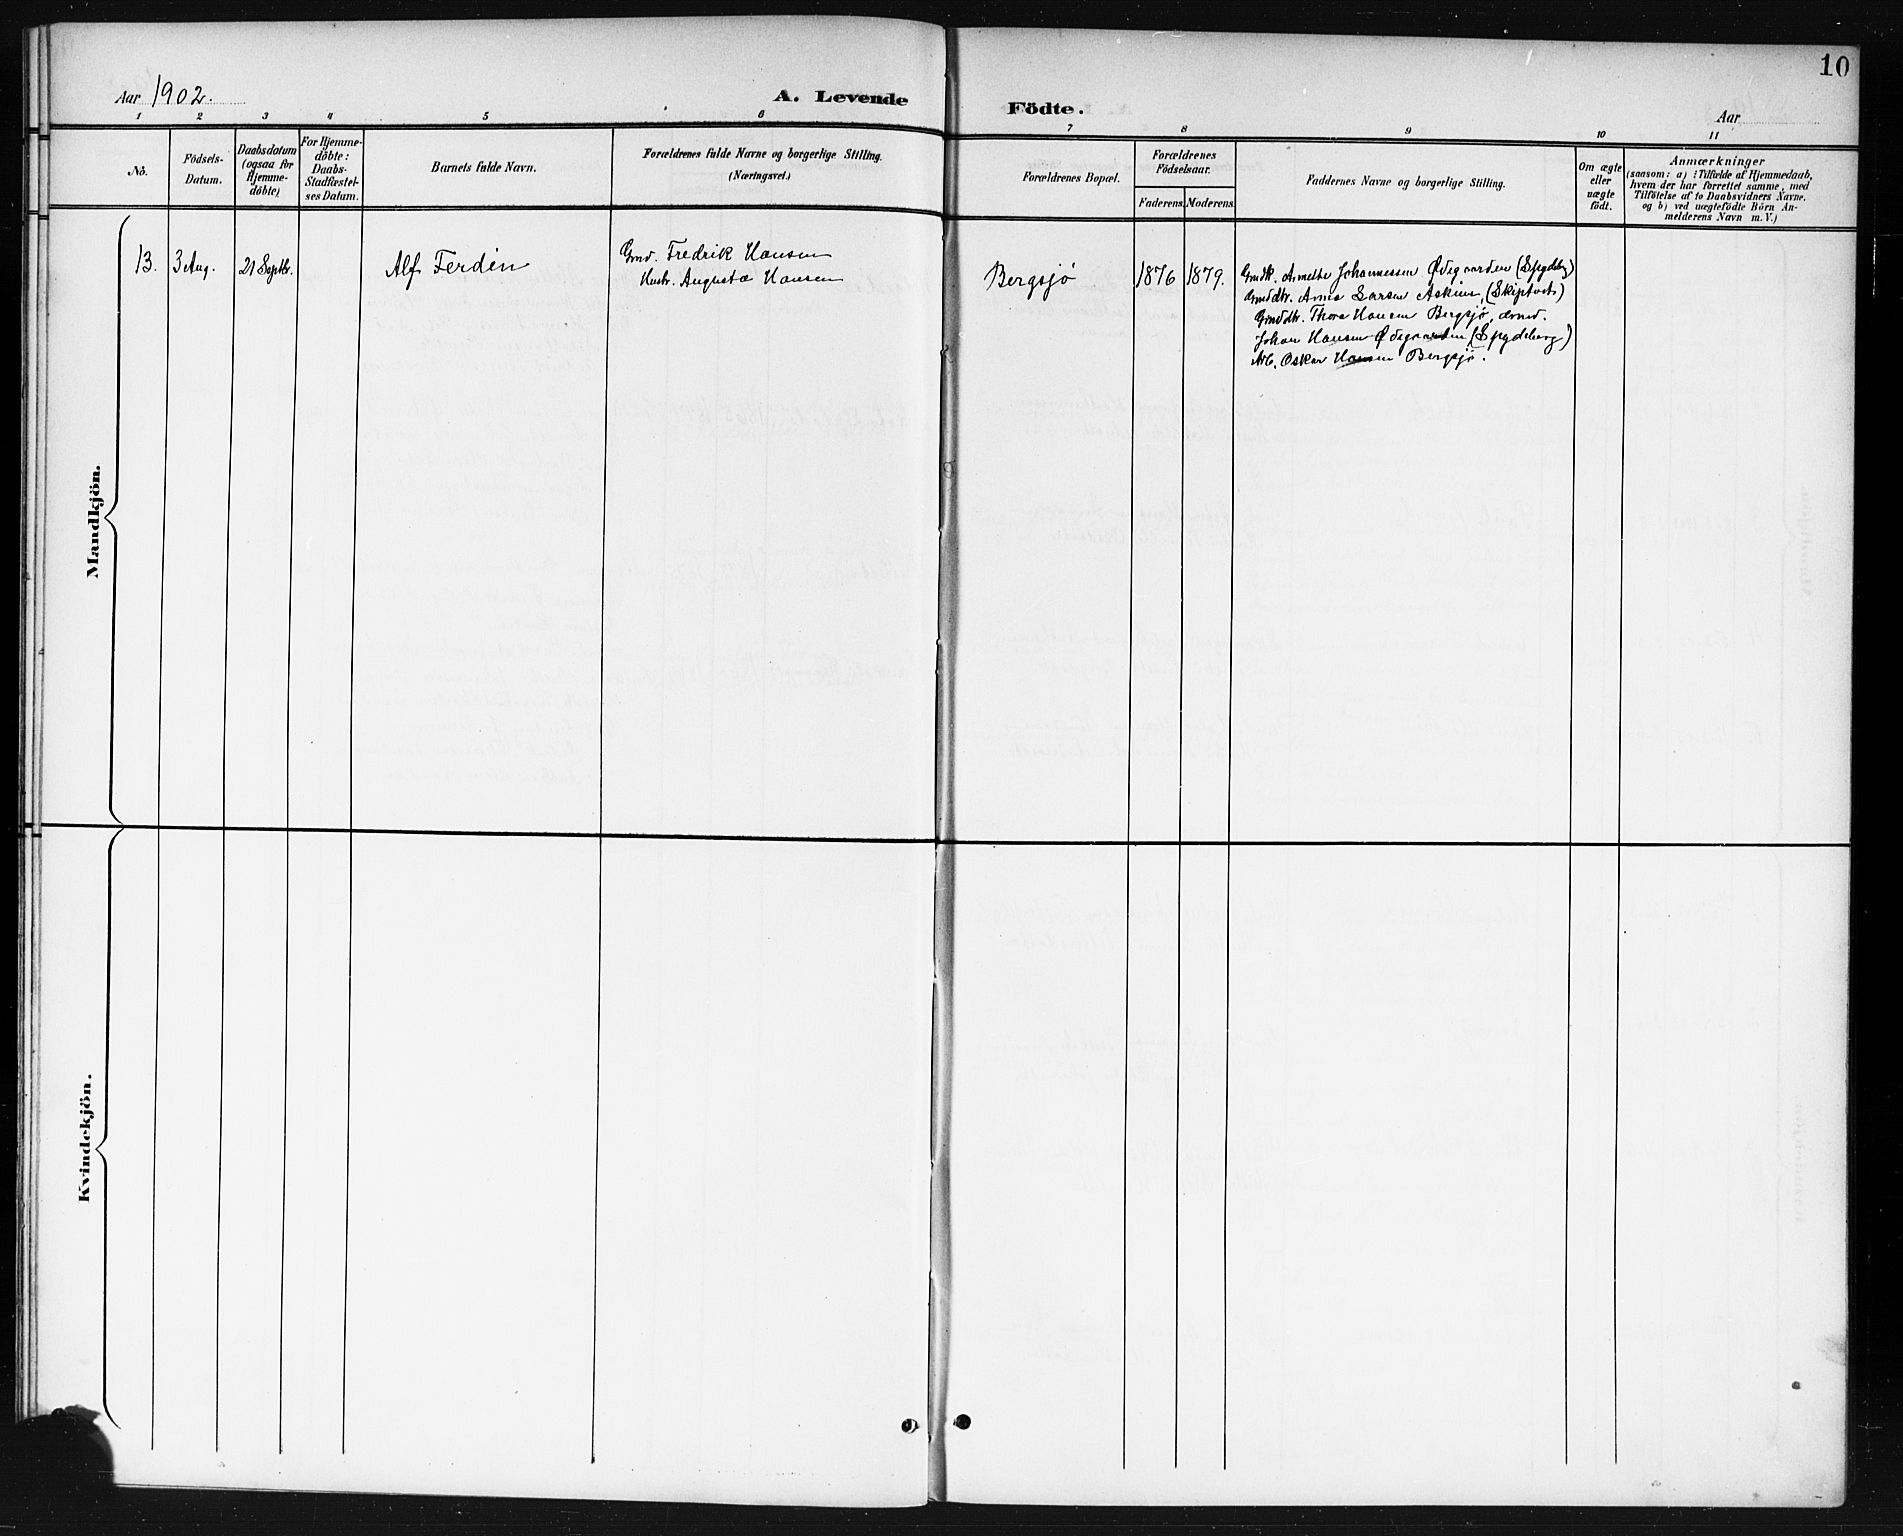 10
Aar 1902. A. Levende Födte. Aar
1 2 3 4 5 6 7 8 9 10 11
No.
Födsels-
Datum.
Daabsdatum
(ogsaa for
Hjemme-
döbte)
For Hjemme-
döbte:
Daabs-
Stadfæstel-
ses Datum.
Barnets fulde Navn.
Forældrenes fulde Navne og borgerlige Stilling.
(Næringsvei.)
Forældrenes Bopæl.
Forældrenes
Födselsaar.
Faderens. Moderens.
Faddernes Navne og borgerlige Stilling.
Om ægte
eller
uægte
födt.
Anmærkninger
(saasom: a) i Tilfælde af Hjemmedaab,
hvem der har forrettet samme, med
Tilföielse af to Daabsvidners Navne.
og b) ved uægtefödte Börn An-
melderens Navn m. V.)
Mandkjön.
13. 3 Aug. 21 Septbr. Alf Ferdin
Grnd. Fredrik Hansen
Hustr. Augusta Hansen
Bergsjö 1876 1879.
Grndk. Amethe Johannessen Ødegaarden (Spydebg)
Grnddtr. Anna Larsen Askim, (Skiptvets)
Grnddtr. Thora Hansen Bergsjö,
Johan Hansen Ødegaarden (Spydeberg)
Arb. Oskar Hansen Bergsjö.
Kvindekjön.